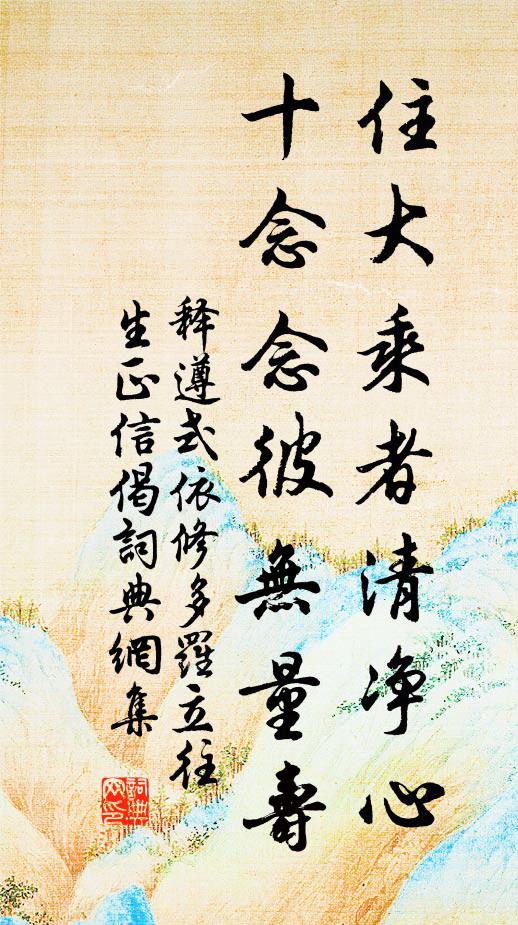 住大乘者清净心
十念念彼無量壽
释遵式依修多羅立往
生正信偈詞典網集